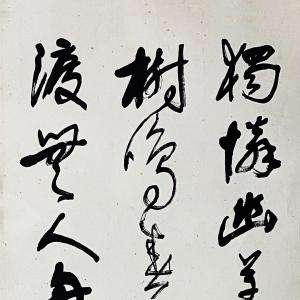 獨憐幽草
樹鳴春
渡無人舟